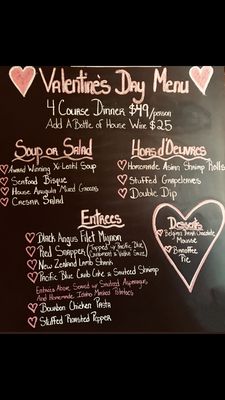 Valentine's Day Menu
4 Course Dinner $49/person
Add A Bottle of House Wine $25
Soup or Salad
Award Winning Lentil Soup
Seafood Bisque
House Arugula Mixed Greens
Caesar Salad
Hors d'Oeuvres
Homemade Asian Shrimp Rolls
Stuffed Grapeleaves
Double Dip
Entrees
Black Angus Filet Mignon
Red Snapper (Topped w/ Pacific Blue Crabmeat &
New Zealand Lamb Shank
Pacific Blue Crab Cake & Sauteed Shrimp
Entrees Above Served w/ Sauteed Asparagus
And Homemade Idaho Mashed Potatoes
Bourbon Chicken Pasta
Stuffed Roasted Pepper
Desserts
Belgian Dark Chocolate
Mousse
Banoffee
Pie